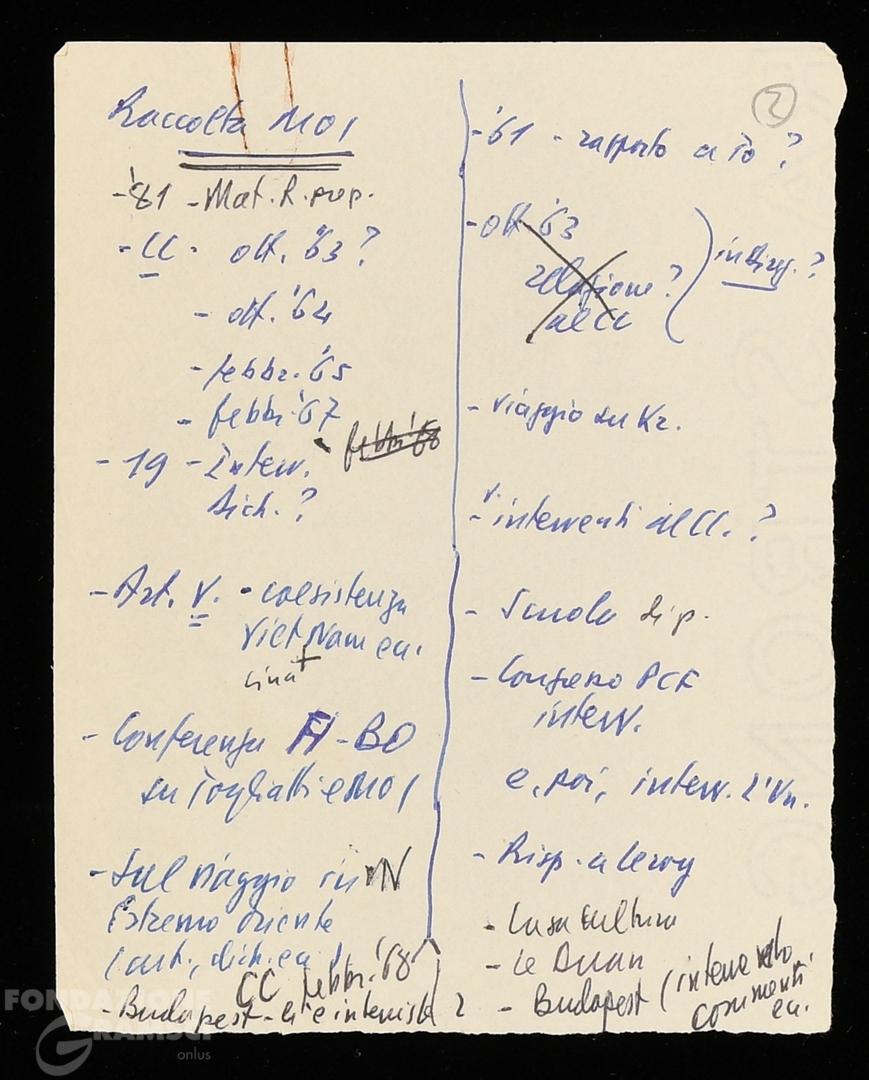 2
Raccolta MOI
-'81 - Mat. R. prep.
- CC - ott. '63 ?
- ott. '64
- febbr. '65
- febbr. '67
- febbr '68
- 19 - Interv.
Dich. ?
- Art. V. - coesistenza
Viet Nam ecc.
Cina +
- Conferenza FI - BO
su Togliatti e MOI
- Sul viaggio in VN
Estremo Oriente
(art., dich. ecc.)
CC febbr. '68
- Budapest - e interviste ?
- '61 - rapporto a To ?
- ott. '63
relazione ?
al CC
in Ding. ?
- Viaggio su Kr.
V.
- interventi al CC. ?
- Scuola di p.
- Congresso PCF
interv.
e, poi, interv. L'Un.
- Risp. a Leroy
- Casa Cultura
- Le Duan
- Budapest (intervento
commenti
ecc.
FONDAZIONE
GRAMSCI
onlus